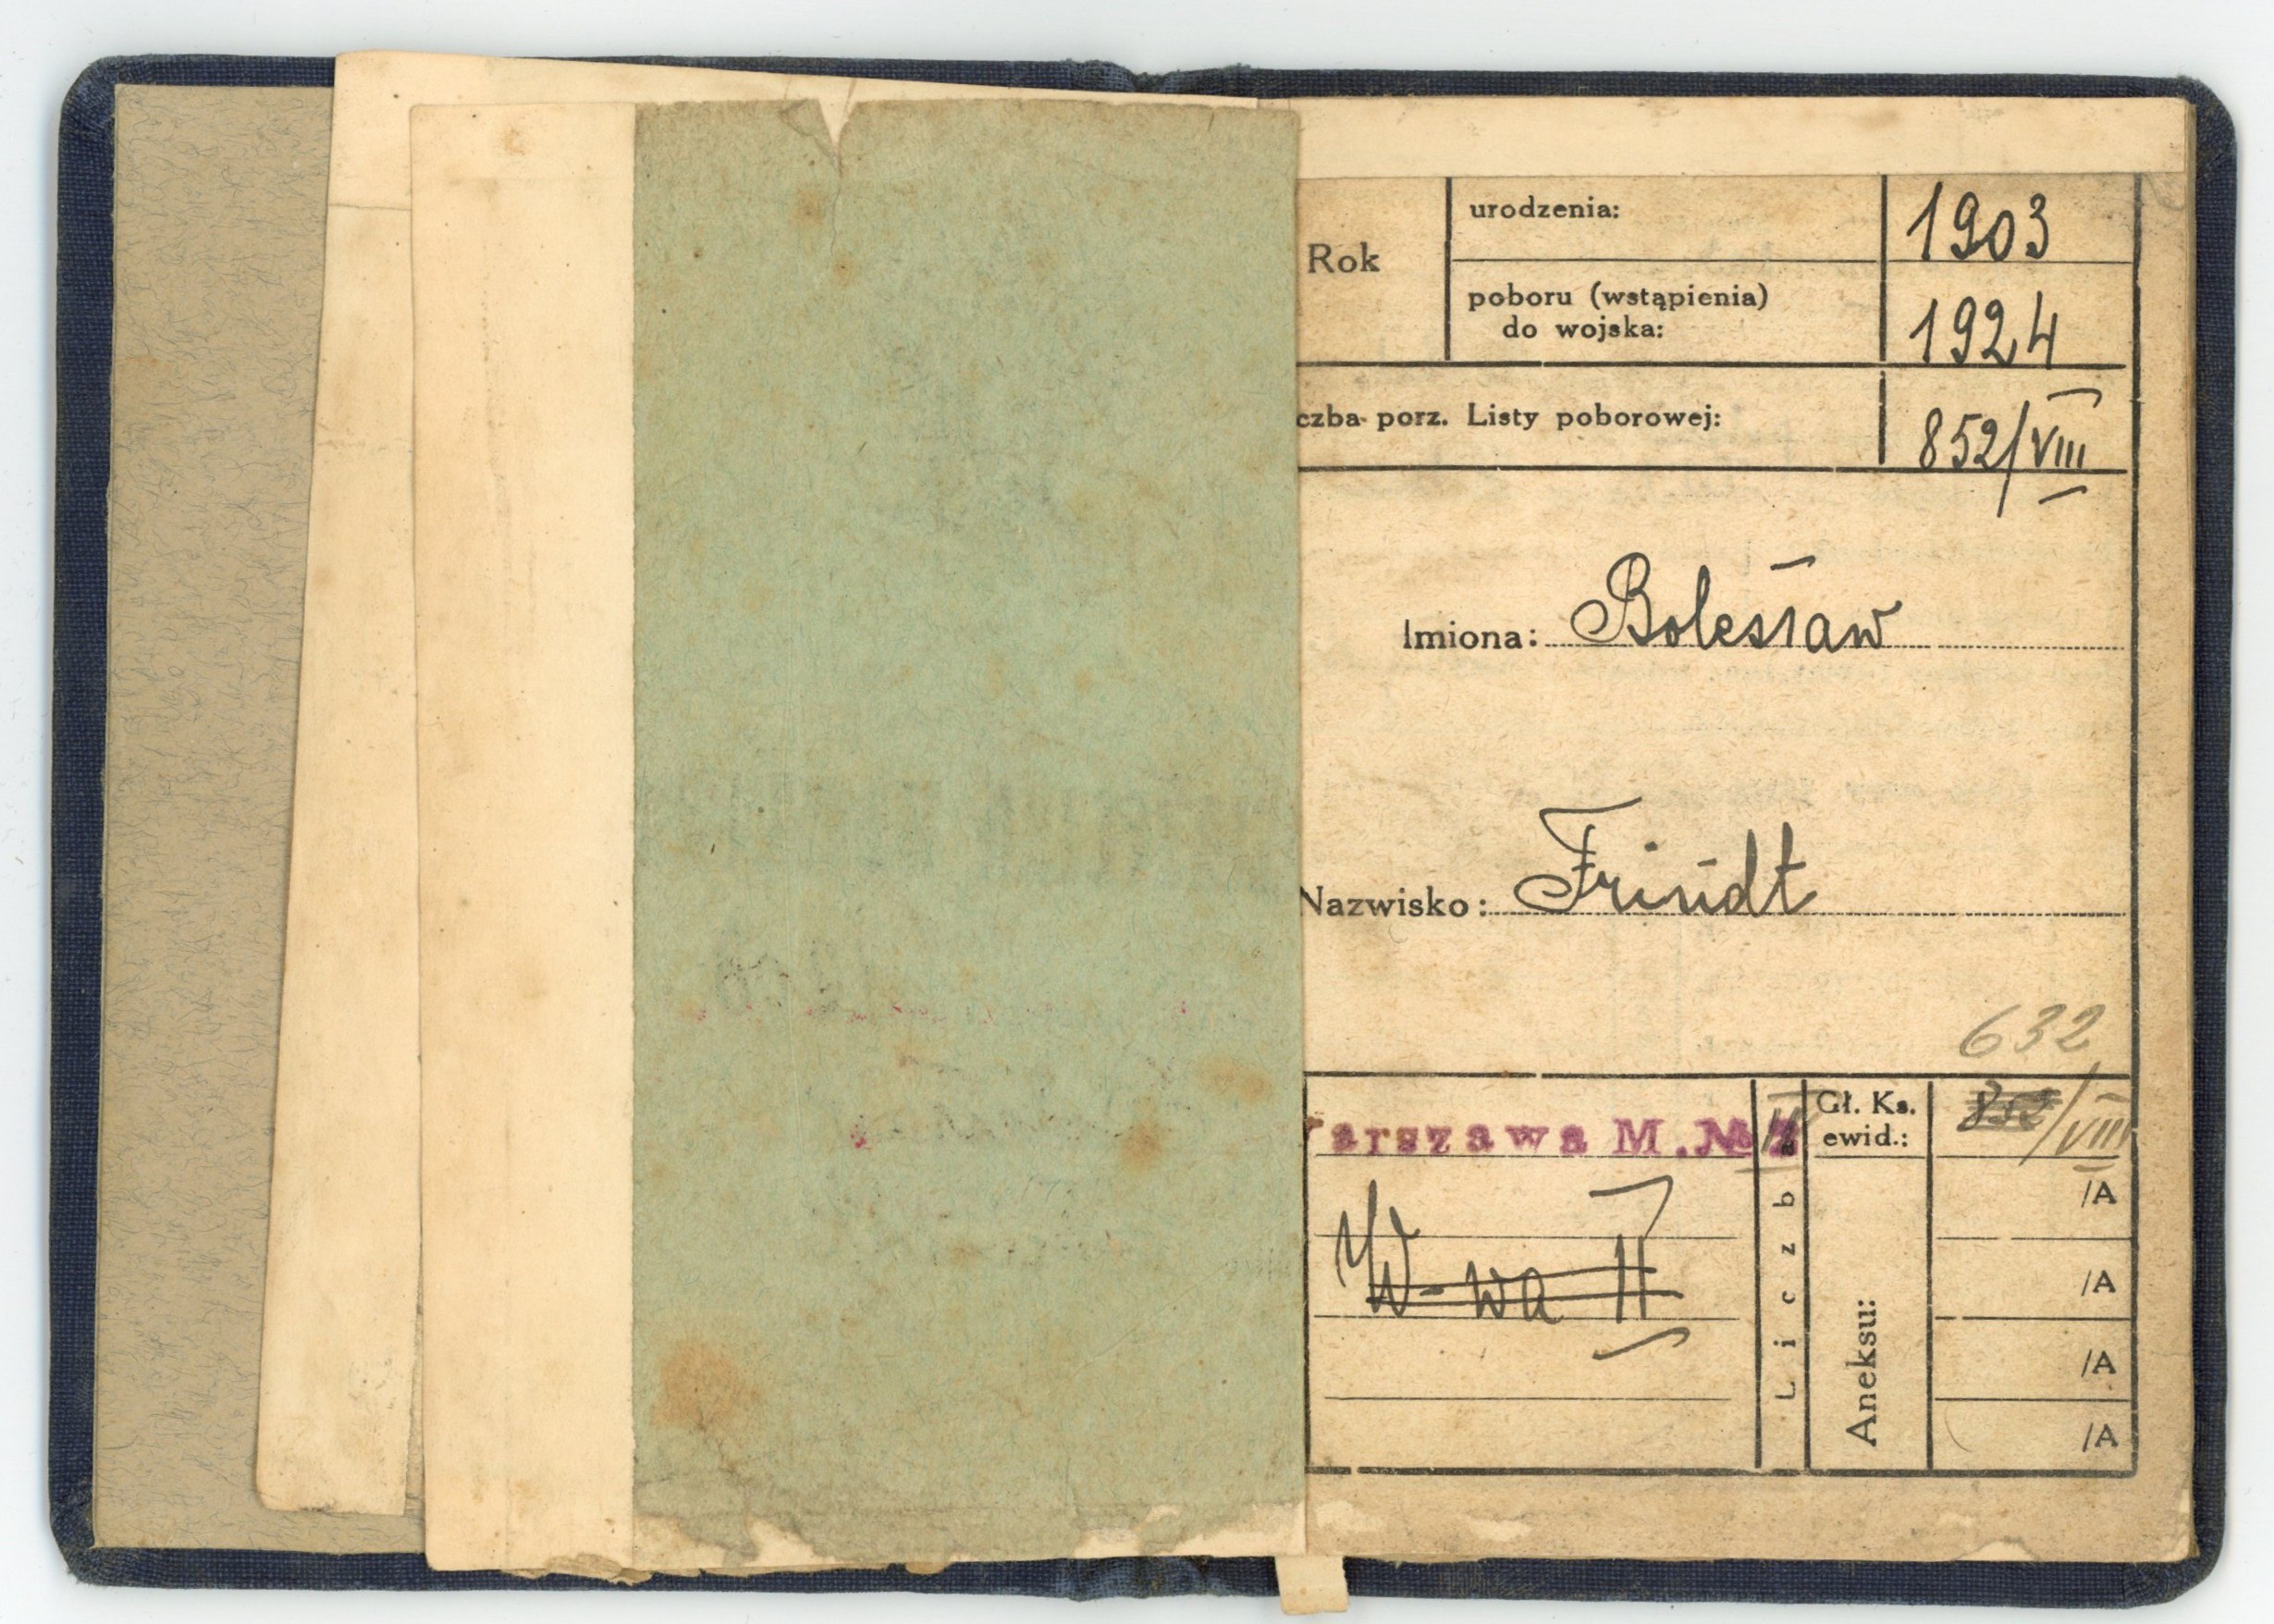 Rok
urodzenia: 1903
poboru (wstąpienia)
do wojska: 1924
czba porz. Listy poborowej: 852/VIII
Imiona: Bolesław
Nazwisko: Frindt
632
arszawa M. №
Liczba
Gł. Ks.
ewid.: 852/VIII
W-wa II
Aneksu:
/A
/A
/A
/A